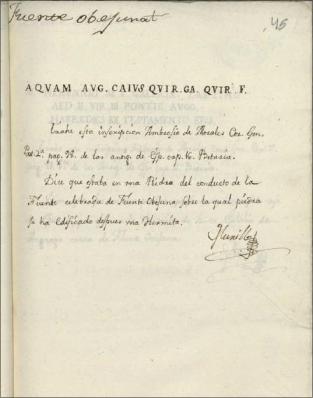 Fuente obejunat
45
AQVAM AVG. CAIVS QVIR. GA. QVIR. F.
Trahe esta inscripcion Ambrosio de Morales Cor. Gen.
pag. de las antig. de Esp. cap.
Dice que estaba en una Piedra del conducto de la
Fuente celebrada de Fuente Obejuna, sobre la qual piedra
se ha edificado despues una Hermita.